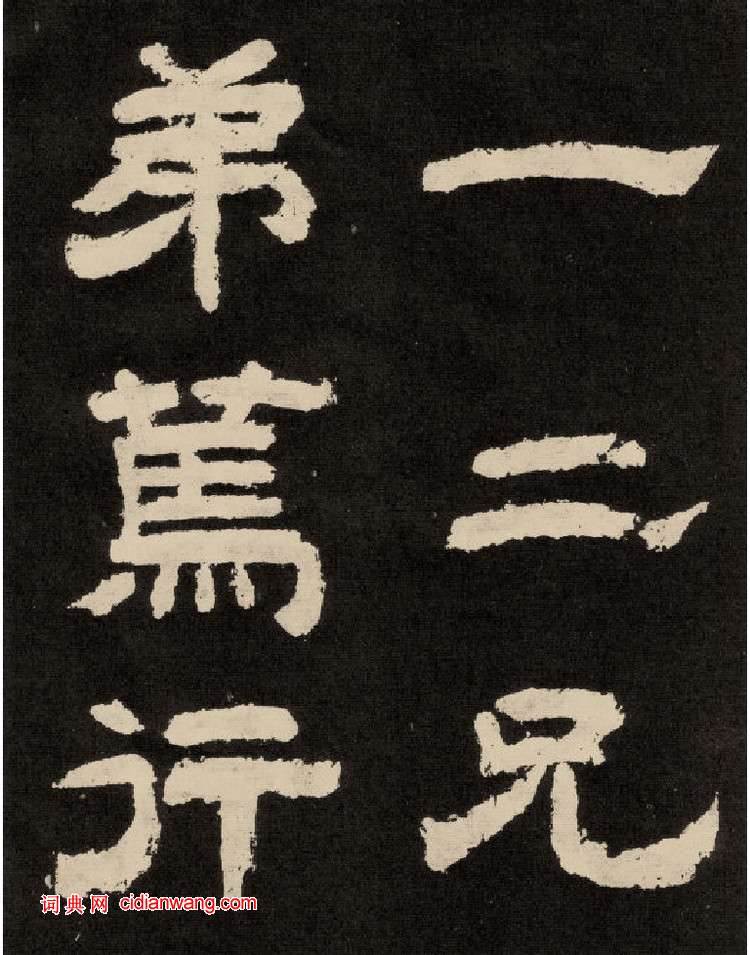 一二兄
弟篤行
词典网 cidianwang.com